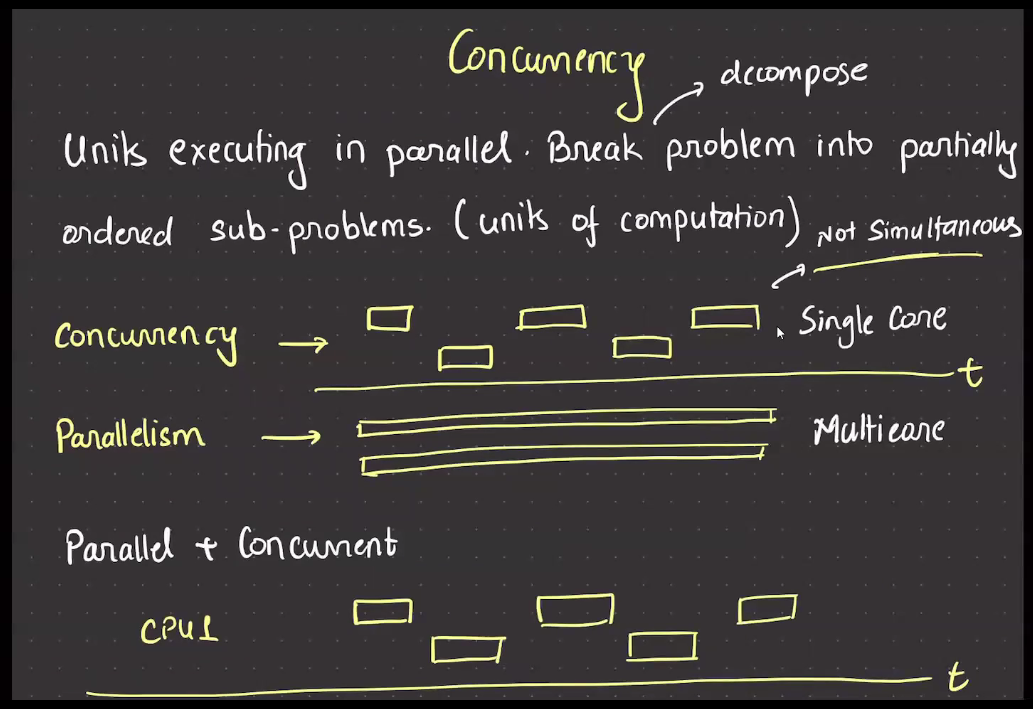 Concurrency
decompose
Units executing in parallel. Break problem into partially
ordered sub-problems. (units of computation)
Not Simultaneous
Concurrency → Single Core
t
Parallelism → Multicore
Parallel + Concurrent
CPU1
t